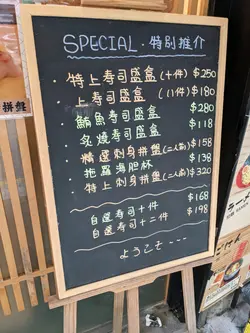 SPECIAL・特別推介
・特上寿司盛盒(十件) $250
・上寿司盛盒(11件) $180
・鮪魚寿司盛盒 $280
・炙燒寿司盛盒 $118
・精選刺身拼盤(二人前) $158
・拖羅海胆杯 $138
・特上刺身拼盤(二人前) $320
自選寿司十件 $168
自選寿司十二件 $198
ようこそ---
拼盤
ラーメン